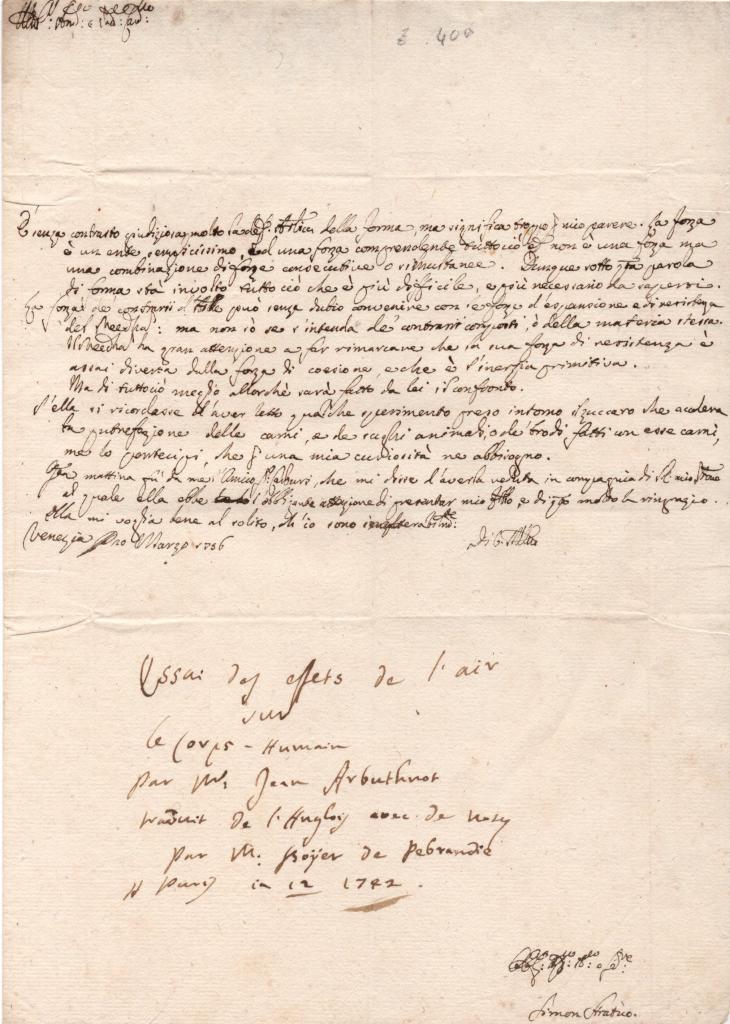 £ 400
È senza contrasto giudiziosa molto la della forma, ma significa troppo mio parere. La forza
è un ente semplicissimo ed una forza comprendente tuttociò non è una forza ma
una combinazione di forze consecutive o simultanee. Dunque sotto parola
di forma stà involto tutto ciò che è più difficile, e più necessario da sapersi.
La forza de contrarii può senza dubio convenire con le forze d'espansione e di resistenza
del Needham: ma non sò se s'intenda de contrarii composti, ò della materia stessa.
Il Needham ha gran attenzione a far rimarcare che la sua forza di resistenza è
assai diversa dalla forza di coesione, e che è l'inerzia primitiva.
Ma di tuttociò meglio allorchè sarà fatto da lei il confronto.
S'ella si ricordasse d'aver letto qualche sperimento preso intorno il zuccaro che accelera
la putrefazione delle carni, e de sughi animati, o de' brodi fatti con esse carni,
me lo partecipi, che una mia curiosità ne abbisogno.
mattina fù da me l'Amico che mi disse d'averla veduta in compagnia di mio
al quale ella ebbe di presentar mio e di molto la ringrazio.
Ella mi voglia bene al solito, ch'io sono
Venezia Marzo 1756
Di V.
Essai des effets de l'air
sur
le Corps-Humain
par Mr Jean Arbuthnot
traduit de l'Anglois avec de notes
par M: Boyer de Pebrandie
A Paris in 12 1742.
Simon Stratico.